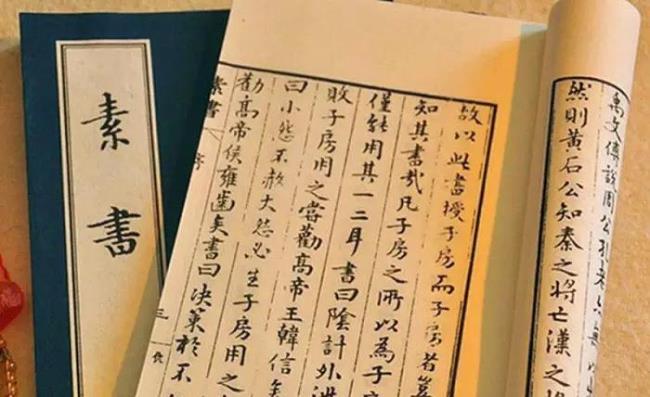 禹文傅說周公孔老亦無以
然則黃石公知秦之將亡漢之將
故以此書授子房而子房者豈
知其書哉凡子房之所以為子房
僅能用其一二耳書曰陰計外泄
敗子房用之嘗勸高帝王韓信矣
曰小怨不赦大怨必生子房用之
勸高帝侯雍齒矣書曰決策於不
素書 序 三
素書